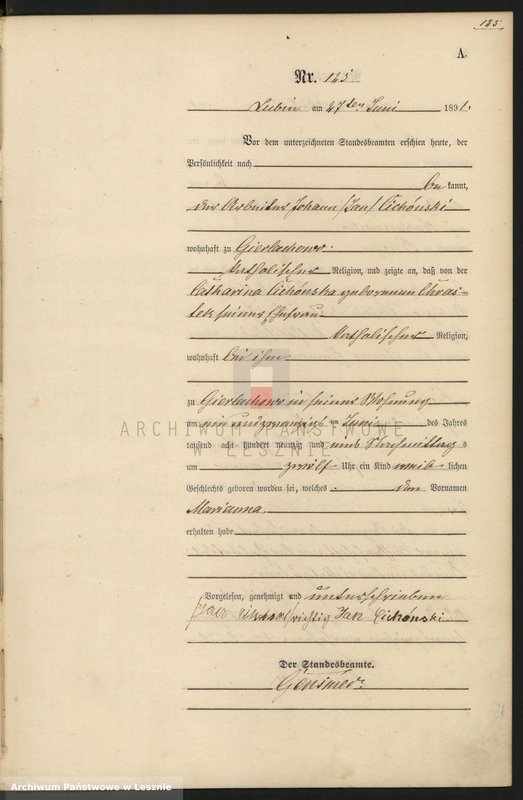 125
A.
Nr. 125
Lubin am 27ten Juni 1891.
Vor dem unterzeichneten Standesbeamten erschien heute, der
Persönlichkeit nach
be kannt,
der Arbeiter Johann /Jan/ Cichónski
wohnhaft zu Gierlachowo
katholischer Religion, und zeigte an, daß von der
Catharina Cichónska geborenen Chras-
tek seiner Ehefrau
katholischer Religion,
wohnhaft bei ihm
zu Gierlachowo in seiner Wohnung
am ein und zwanzigs ten Juni des Jahres
tausend acht hundert neunzig und eins Nachmittag s
um zwölf Uhr ein Kind weib lichen
Geschlechts geboren worden sei, welches den Vornamen
Marianna
erhalten habe
Vorgelesen, genehmigt und unterschrieben
/Jan richtig Jan Cichónski
Der Standesbeamte.
Gensmer
ARCHIWUM PAŃSTWOWE
W LESZNIE
Archiwum Państwowe w Lesznie